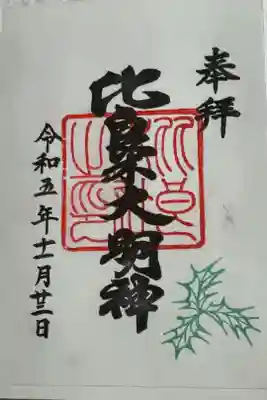 奉拝
比良木大明神
令和五年十一月廿三日